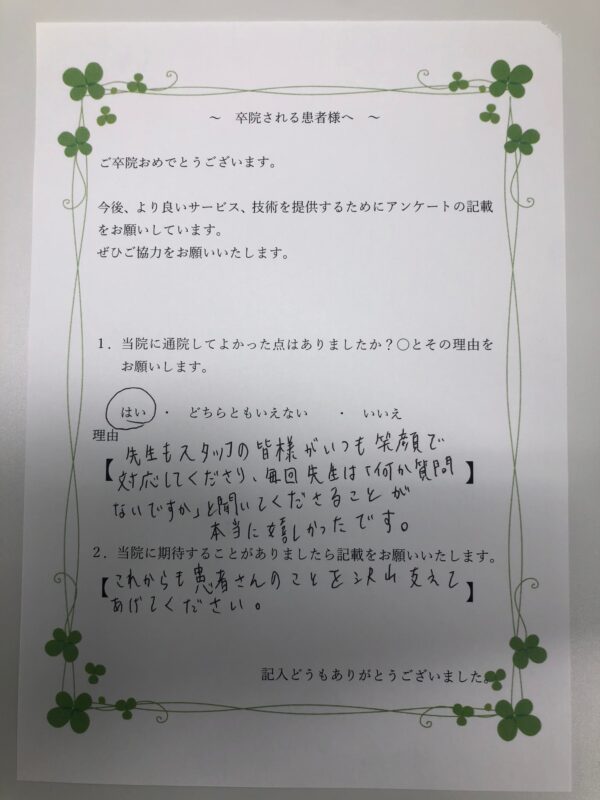 ～　卒院される患者様へ　～
ご卒院おめでとうございます。
今後、より良いサービス、技術を提供するためにアンケートの記載
をお願いしています。
ぜひご協力をお願いいたします。
１．当院に通院してよかった点はありましたか？○とその理由を
お願いします。
はい　・　どちらともいえない　　・　いいえ
理由
【先生もスタッフの皆様がいつも笑顔で
対応してくださり、毎回先生は「何か質問
ないですか」と聞いてくださることが
本当に嬉しかったです。】
２．当院に期待することがありましたら記載をお願いいたします。
【これからも患者さんのことを沢山支えて
あげてください。】
記入どうもありがとうございました。